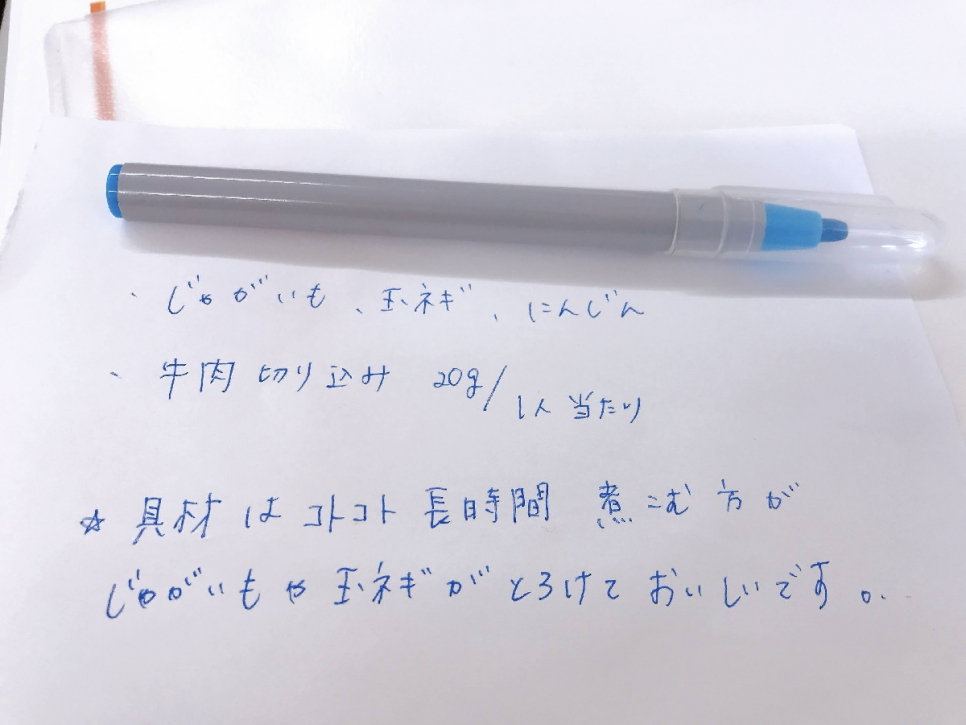 ・じゃがいも、玉ネギ、にんじん
・牛肉切り込み 20g/1人当たり
☆具材はコトコト長時間 煮こむ方が
じゃがいもや玉ネギがとろけておいしいです。..